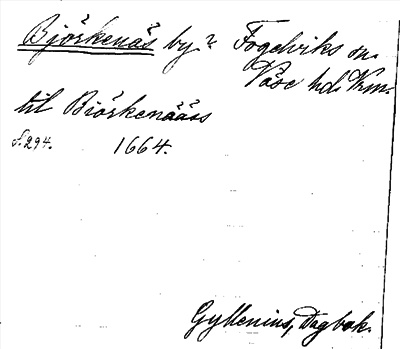 Björkenäs by? Fogelviks sn.
Väse hd. Vrm.
til Biörkenääss
s. 294. 1664.
Gyllenius, Dagbok.